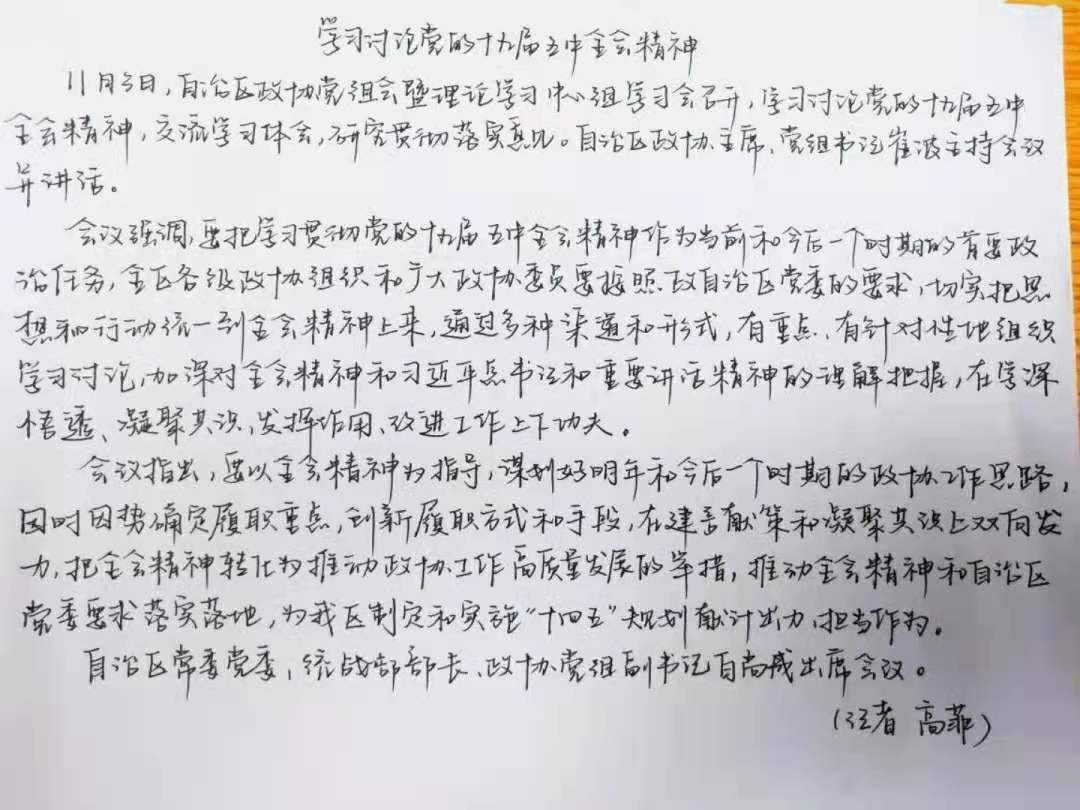 学习讨论党的十九届五中全会精神
11月3日，自治区政协党组会暨理论学习中心组学习会召开，学习讨论党的十九届五中
全会精神，交流学习体会，研究贯彻落实意见。自治区政协主席、党组书记崔波主持会议
并讲话。
会议强调，要把学习贯彻党的十九届五中全会精神作为当前和今后一个时期的首要政
治任务，全区各级政协组织和广大政协委员要按照政自治区党委的要求，切实把思
想和行动统一到全会精神上来，通过多种渠道和形式，有重点、有针对性地组织
学习讨论，加深对全会精神和习近平总书记和重要讲话精神的理解把握，在学深
悟透、凝聚共识、发挥作用、改进工作上下功夫。
会议指出，要以全会精神为指导，谋划好明年和今后一个时期的政协工作思路，
因时因势确定履职重点，创新履职方式和手段，在建言献策和凝聚共识上双向发
力，把全会精神转化为推动政协工作高质量发展的举措，推动全会精神和自治区
党委要求落实落地，为我区制定和实施“十四五”规划献计出力、担当作为。
自治区常委党委，统战部部长、政协党组副书记白尚成出席会议。
（记者 高菲）